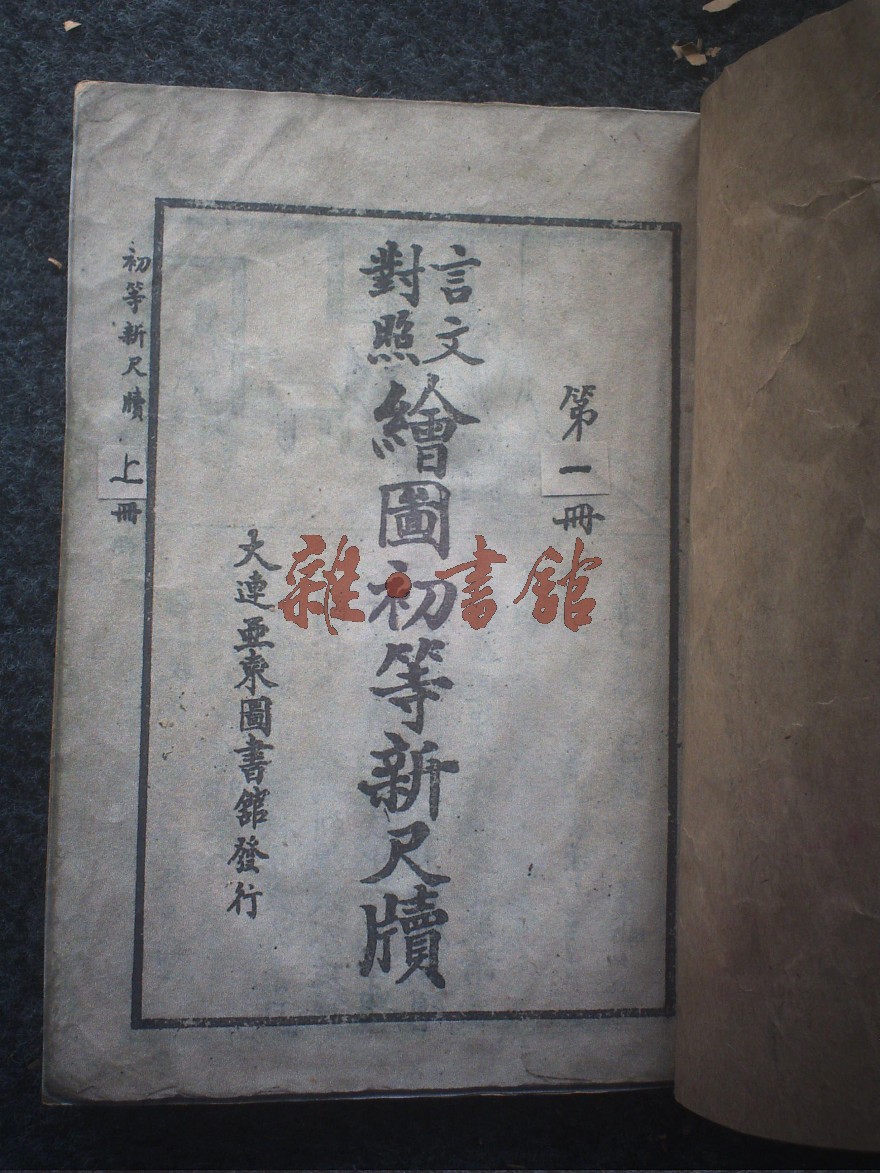 第一冊
言文
對照
繪圖初等新尺牘
大連亜東圖書館發行
初等新尺牘 上冊
雜·書館